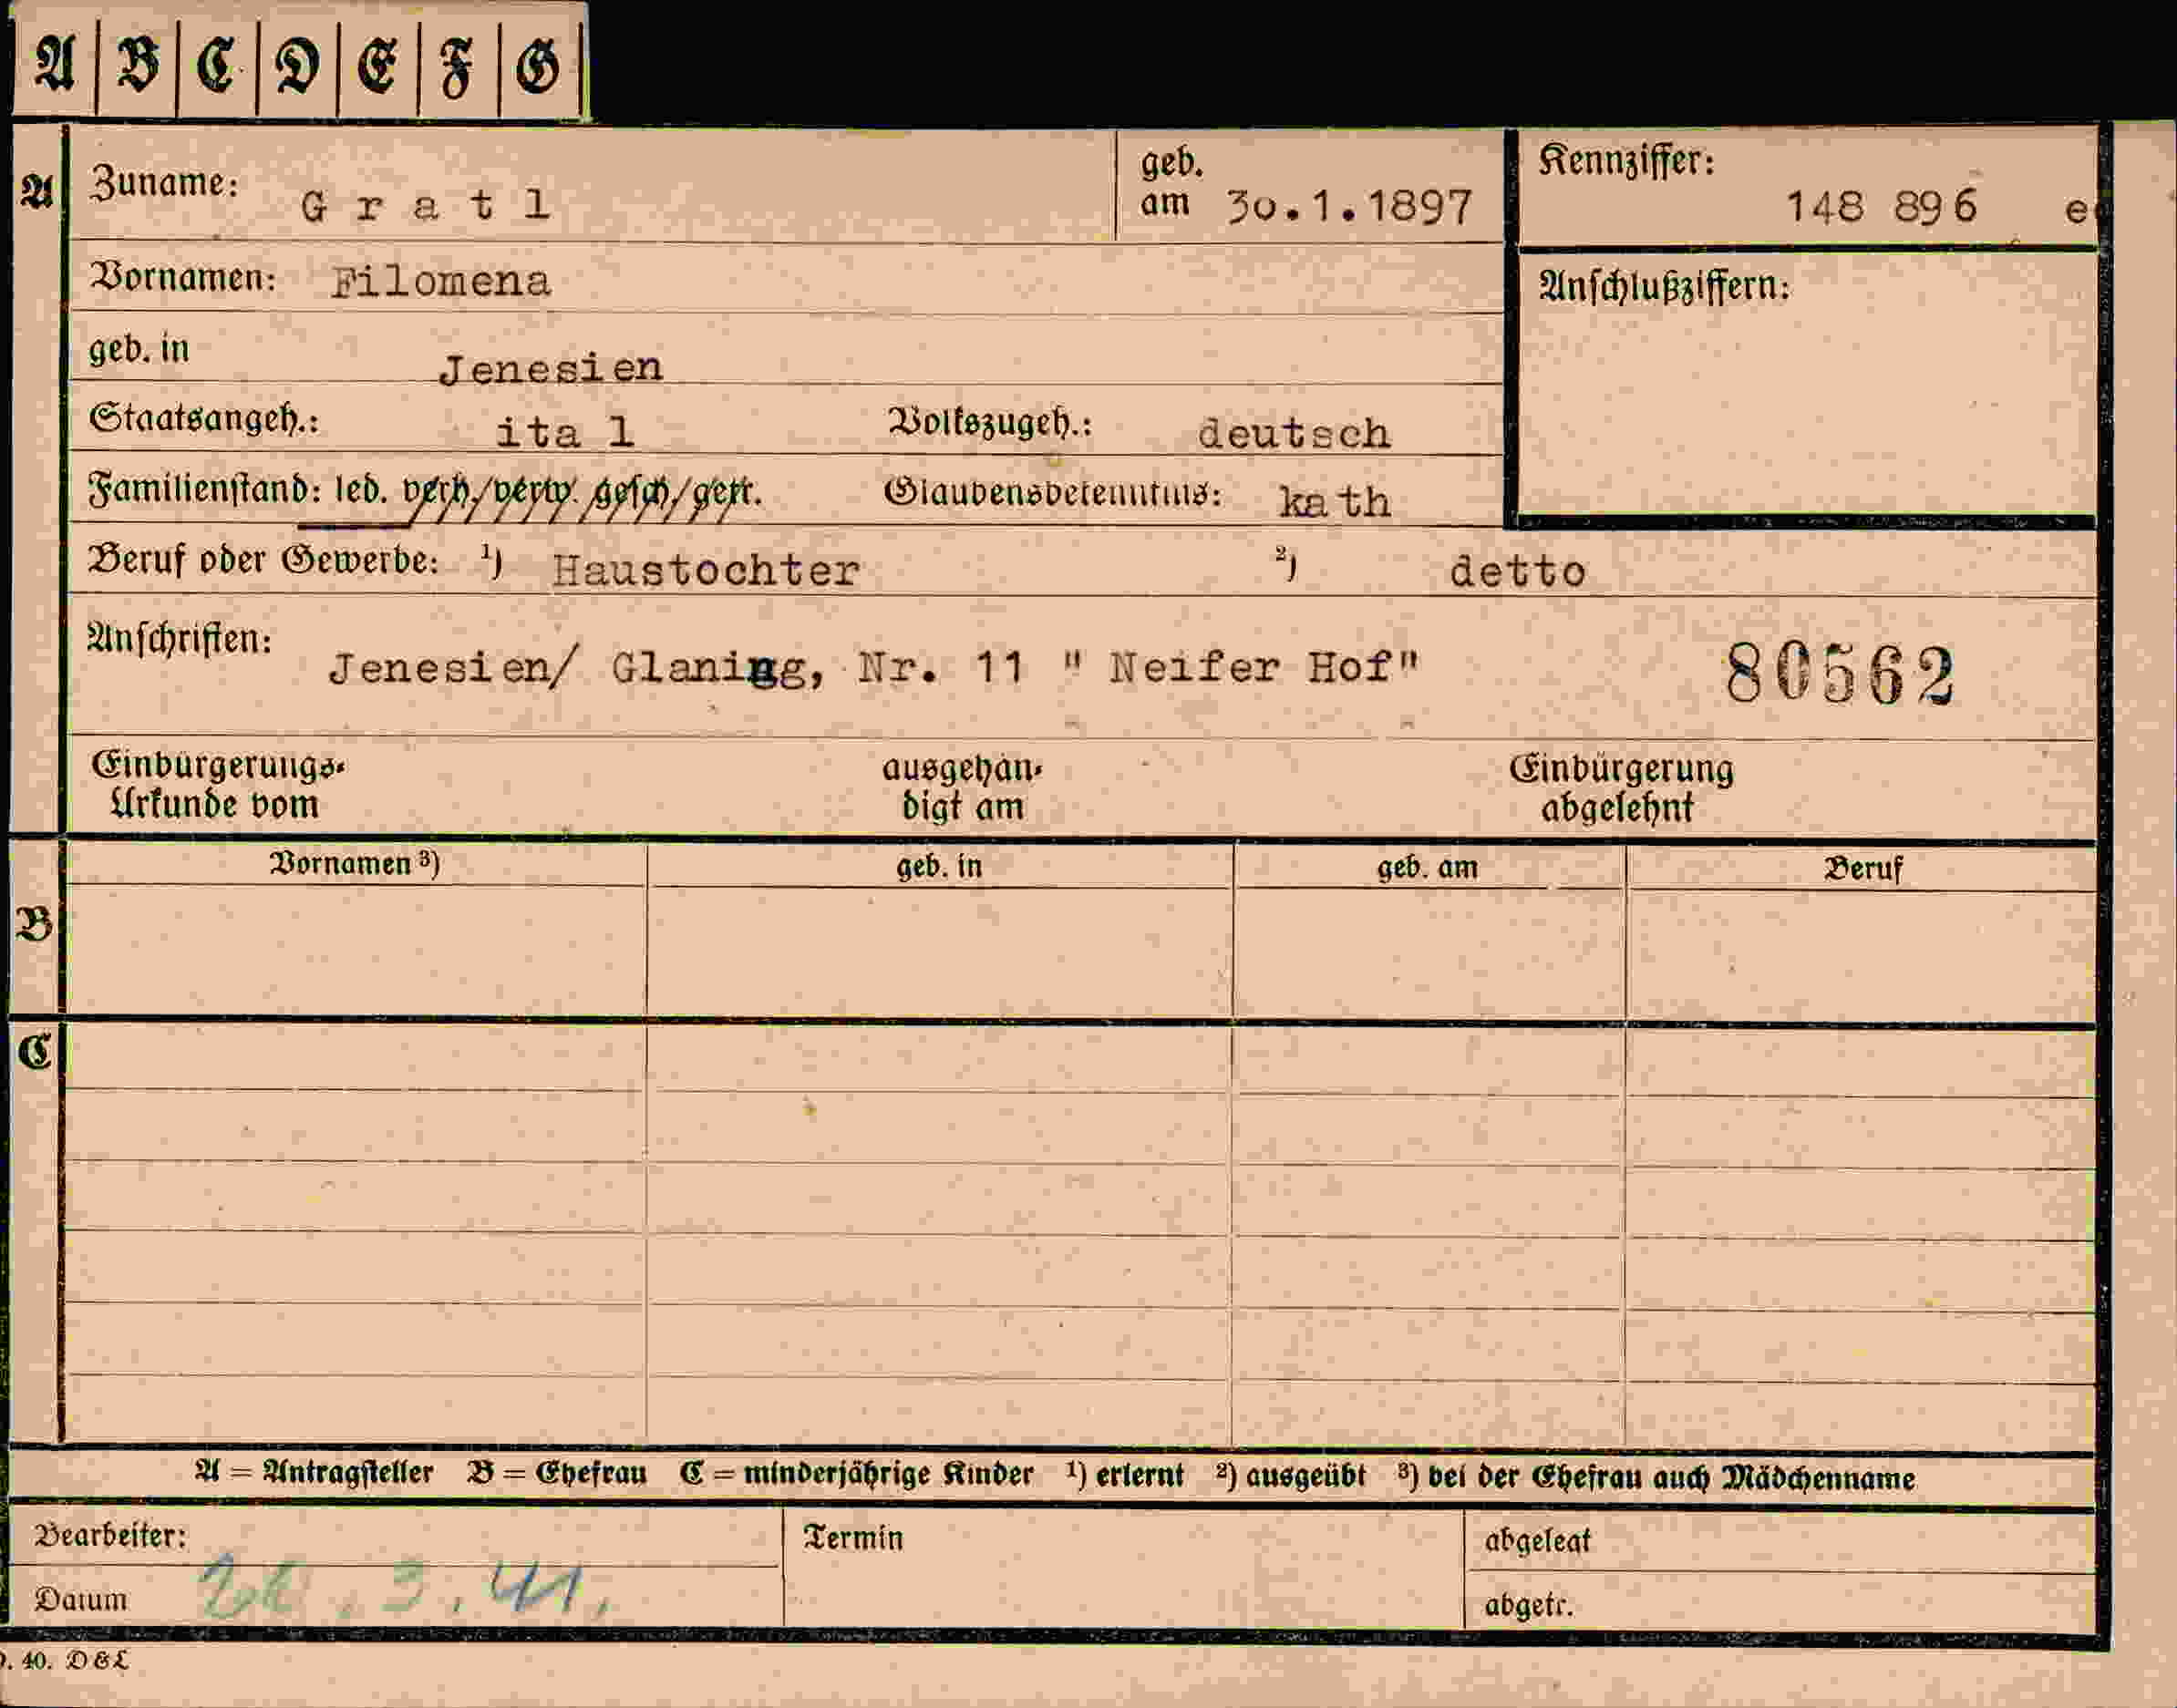 A B C D E F G
A Zuname: Gratl geb. am 30.1.1897 Kennziffer: 148 896 e
Vornamen: Filomena Anschlußziffern:
geb. in Jenesien
Staatsangeh.: ita l Volkszugeh.: deutsch
Familienstand: led. verh./verw. gesch/getr. Glaubensbekenntnis: kath
Beruf oder Gewerbe: ¹) Haustochter ²) detto
Anschriften: Jenesien/ Glaning, Nr. 11 " Neifer Hof" 80562
Einbürgerungs- ausgehän- Einbürgerung
Urkunde vom digt am abgelehnt
Vornamen ³) geb. in geb. am Beruf
B
C
A = Antragsteller B = Ehefrau C = minderjährige Kinder ¹) erlernt ²) ausgeübt ³) bei der Ehefrau auch Mädchenname
Bearbeiter: Termin abgelegt
Datum 26.3.41. abgetr.
40. D&L